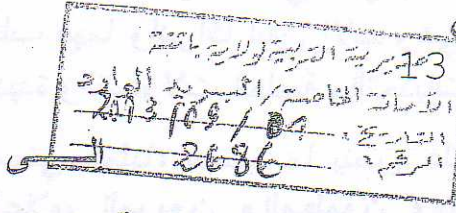 13
مديرية التربية لولاية باتنة
الأمانة الخاصة/البريد الوارد
التاريخ:
الرقم: 2686